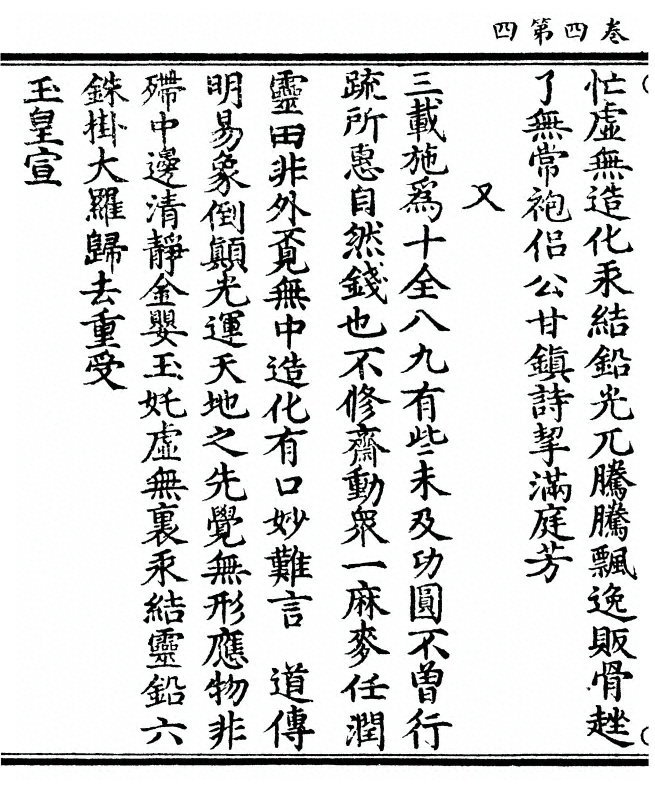 四第四卷
忙虛無造化汞結鉛光兀騰騰飄逸販骨𨀛
了無常袍侶公甘鎮詩挈滿庭芳
又
三載施爲十全八九有些未及功圓不曾行
疏所惠自然錢也不修齋動衆一麻麥任潤
靈田非外覓無中造化有口妙難言　道傳
明易象倒顛光運天地之先覺無形應物非
殢中邊清靜金嬰玉奼虛無裏汞結靈鉛六
銖掛大羅歸去重受
玉皇宣